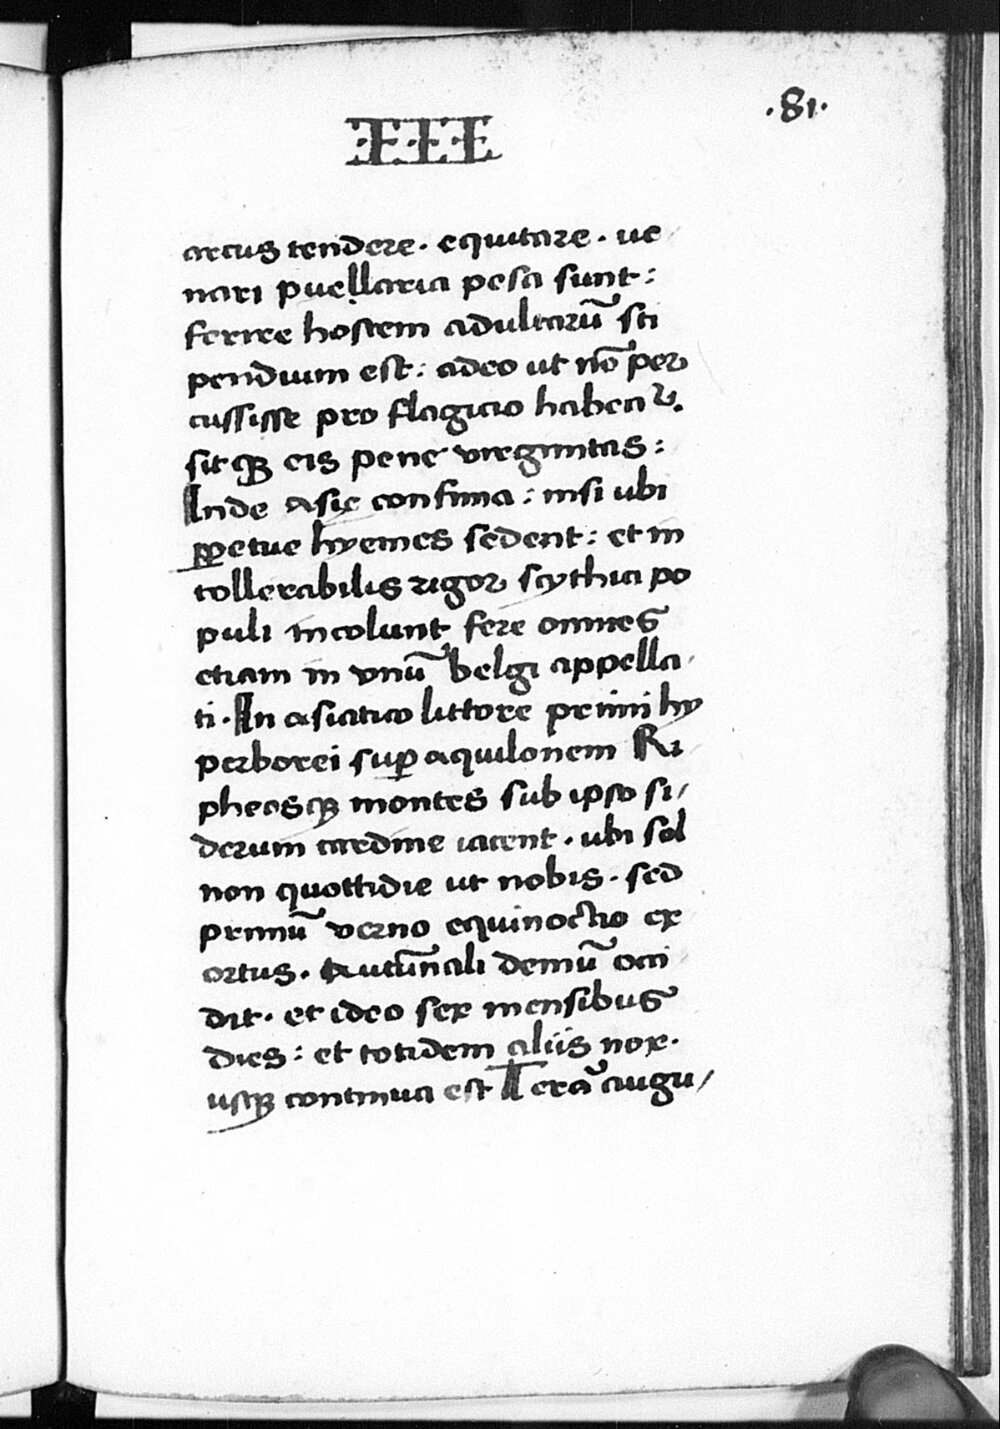 .81.
III
arcus tendere. equitare. ue
nari puellaria pesa sunt:
ferire hostem adultarū sti
pendium est: adeo ut nō per
cussisse pro flagitio habeaꝛ.
sitqꝫ eis pene virginitas:
Inde asie confinia: nisi ubi
ꝑpetue hyemes sedent: et in
tollerabilis rigor scythici po
puli incolunt fere omnes
etiam in vnū belgi appella
ti. In asiatico littore primi hy
perborei suꝑ aquilonem Ri
pheosqꝫ montes sub ipso si/
derum cardine iacent. ubi sol
non quottidie ut nobis. sed
primū verno equinoctio ex
ortus. Autūnali demū occi
dit. et ideo sex mensibus
dies: et totidem aliis nox.
usqꝫ continua est Terā augu/